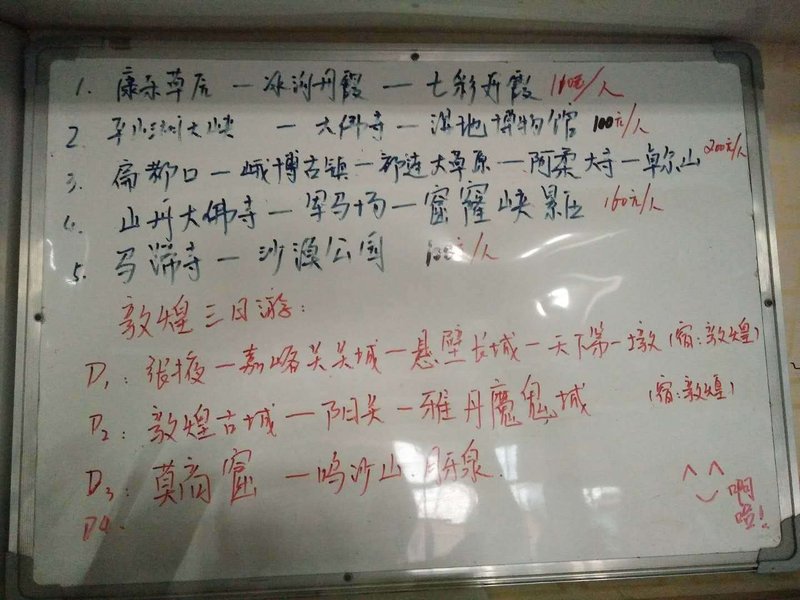 1. 康乐草原 — 冰沟丹霞 — 七彩丹霞 110元/人
2. 平山湖大峡 — 大佛寺 — 湿地博物馆 100元/人
3. 扁都口 — 峨博古镇 — 祁连大草原 — 阿柔大寺 — 卓尔山 200元/人
4. 山丹大佛寺 — 军马场 — 窟窿峡景区 160元/人
5. 马蹄寺 — 沙漠公园 100元/人
敦煌三日游:
D1: 张掖 — 嘉峪关关城 — 悬壁长城 — 天下第一墩 (宿:敦煌)
D2: 敦煌古城 — 阳关 — 雅丹魔鬼城 (宿:敦煌)
D3: 莫高窟 — 鸣沙山.月牙泉.
D4.
啊
啦!